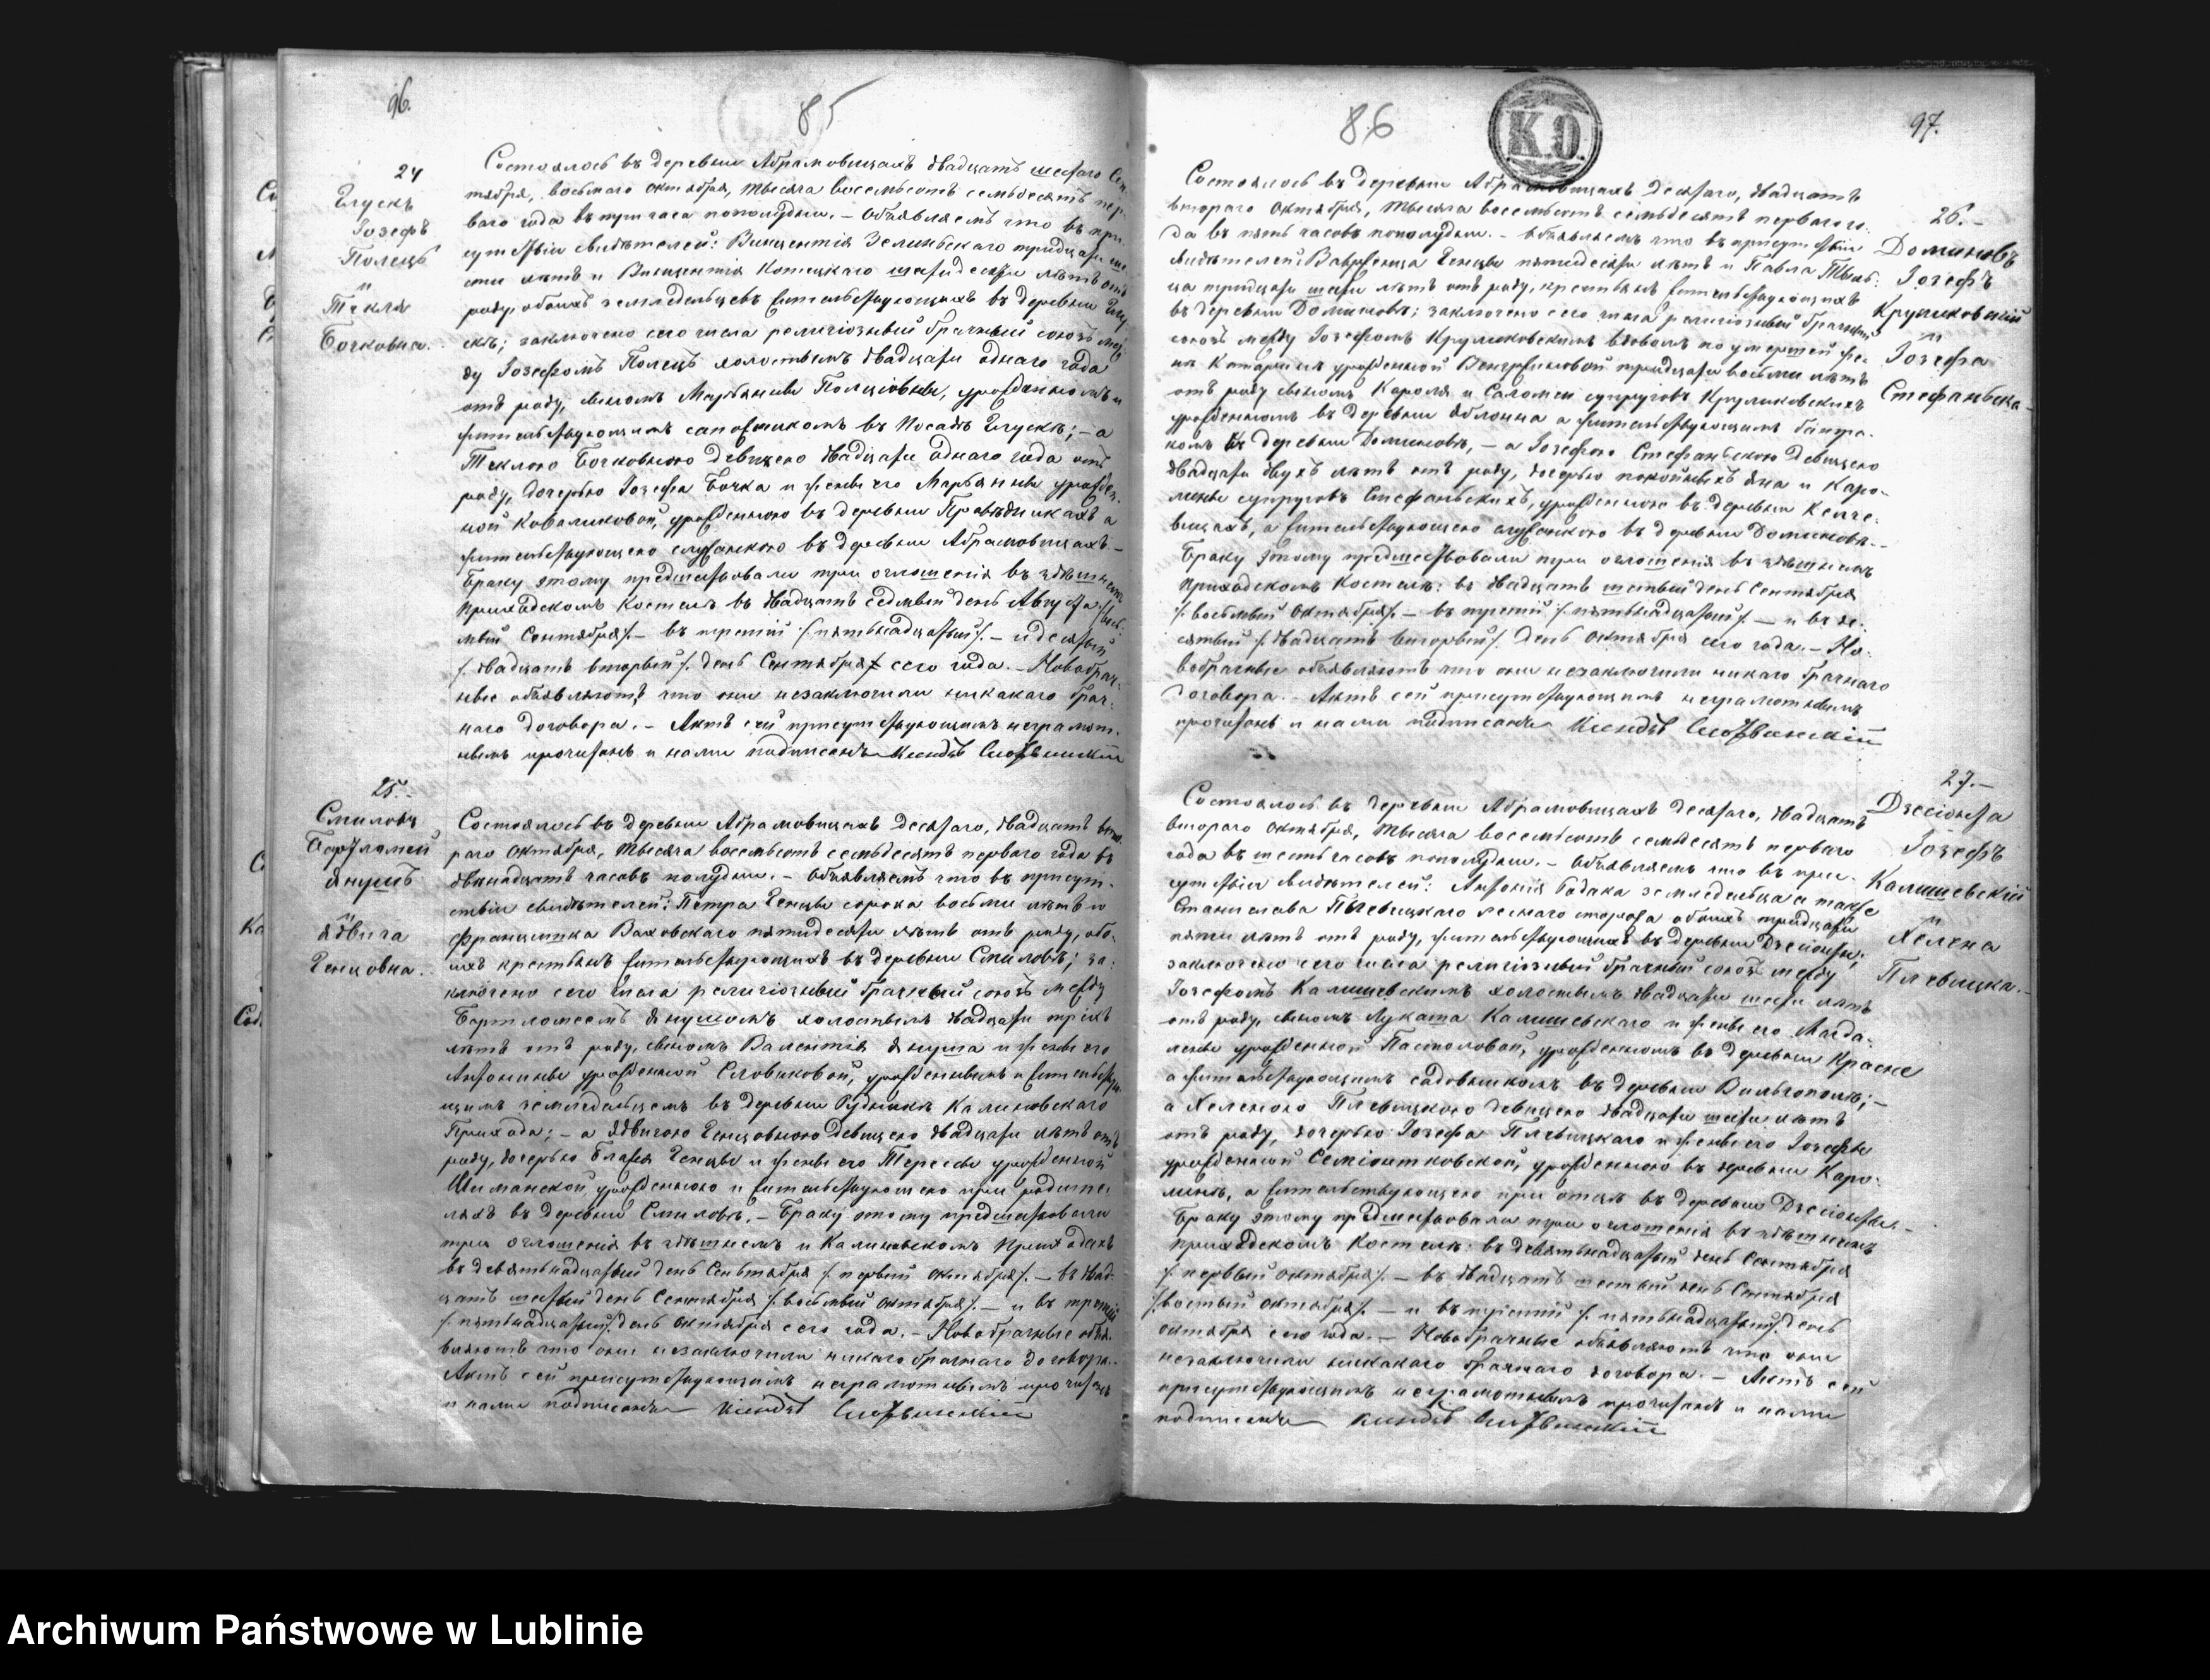 96.
85
24
Глускъ
Іозефъ
Полецъ
и
Текля
Бочковна.
Состоялось въ деревни Абрамовицахъ двадцать шестаго Сен-
тября, восьмаго октября, тысяча восемьсотъ семьдесятъ пер-
ваго года въ три часа пополудни. – Объявляемъ что въ при-
сутствіи свидѣтелей: Винцентія Зелинскаго тридцати
лѣтъ и Винцентія Котецкаго шестидесяти лѣтъ отъ
роду, обоихъ земледѣльцевъ жительствующихъ въ деревни Глу-
скѣ; заключено сего числа религіозный брачный союзъ меж-
ду Іозефомъ Полецъ холостымъ двадцати одного года
отъ роду, сыномъ Марьянны Полціовны, урожденнымъ и
жительствующимъ сапожникомъ въ Посадѣ Глускѣ; – а
Теклою Бочковною девицею двадцати одного года отъ
роду, дочерью Іозефа Бочка и жены его Марьянны урожден-
ной Коваликовой, урожденною въ деревни Правѣдникахъ а
жительствующею служанкою въ деревни Абрамовицахъ –
Браку этому предшествовали три оглошенія въ здѣшнемъ
приходскомъ Костелѣ въ двадцать седмый день Августа /вось-
мый Сентября/. – въ третій /пятьнадцатый/. – и десятый
/двадцать вторый/. день Сентября сего года. – Новобрач-
ные объявляютъ что они незаключили никакаго брач-
наго договора. – Актъ сей присутствующимъ неграмот-
нымъ прочитанъ и нами подписанъ Ксендзъ
25.
Смиловъ
Бартламей
Янушъ
и
Ядвига
Генцовна.
Состоялось въ деревни Абрамовицахъ десятаго, двадцать вто-
раго октября, тысяча восемьсотъ семьдесятъ перваго года въ
двѣнадцать часовъ полудни. – Объявляемъ что въ присут-
ствіи свидѣтелей: Петра Генцы сорока восьми лѣтъ и
Францишка Ваховскаго пятидесяти лѣтъ отъ роду, обо-
ихъ крестьянъ жительствующихъ въ деревни Смиловѣ; за-
ключено сего числа религіозный брачный союзъ между
Бартломеемъ Янушомъ холостымъ двадцати трехъ
лѣтъ отъ роду, сыномъ Валентія Януша и жены его
Антонины урожденной Словиковой, урожденнымъ и жительствую-
щимъ земледѣльцемъ въ деревни Рудникѣ Калиновскаго
Прихода; – а Ядвигою Генцовною девицею двадцати лѣтъ отъ
роду, дочерью Блажея Генцы и жены его Терессы урожденной
Шиманской, урожденною и жительствующею при родите-
ляхъ въ деревни Смиловѣ. – Браку этому предшествовали
три оглошенія въ здѣшнемъ и Калиновскомъ Приходахъ
въ девятьнадцатый день Сентября /первый октября/. – въ двад-
цать шестый день Сентября /восьмый октября/. – и въ третій
/пятьнадцатый/. день октября сего года. – Новобрачные объя-
вляютъ что они незаключили никаго брачнаго договора. –
Актъ сей присутствующимъ неграмотнымъ прочитанъ
и нами подписанъ Ксендзъ
86
К.О.
97.
26. –
Доминовъ
Іозефъ
Круликовскій
и
Іозефа
Стефаньска
Состоялось въ деревни Абрамовицахъ десятаго, двадцать
втораго октября, тысяча восемьсотъ семьдесятъ перваго го-
да въ пять часовъ пополудни. – объявляемъ что въ присутствіи
свидѣтелей: Вавренца Генцы пятидесяти лѣтъ и Павла
ца тридцати шести лѣтъ отъ роду, крестьянъ жительствующихъ
въ деревни Доминовѣ; заключено сего числа религіозный брачный
союзъ между Іозефомъ Круликовскимъ вдовомъ по умершей же-
нѣ Катаржинѣ урожденной Венгржиновой тридцати восьми лѣтъ
отъ роду сыномъ Кароля и Саломеи супруговъ Круликовскихъ
урожденнымъ въ деревни Яблонна а жительствующимъ
комъ въ деревни Доминовѣ, – а Іозефою Стефаньскою девицею
двадцати двухъ лѣтъ отъ роду, дочерью покойныхъ Яна и Каро-
лины супруговъ Стефаньскихъ, урожденною въ деревни Келче-
вицахъ, а жительствующею служанкою въ деревни Доминовѣ. –
Браку этому предшествовали три оглошенія въ здѣшнемъ
приходскомъ Костелѣ: въ двадцать шестый день Сентября
/восьмый октября/. – въ третій /пятьнадцатый/. – и въ де-
сятый /двадцать вторый/. день октября сего года. – Но-
вобрачные объявляютъ что они незаключили никаго брачнаго
договора. – Актъ сей присутствующимъ неграмотнымъ
прочитанъ и нами подписанъ Ксендзъ
27. –
Дзесіонта
Іозефъ
Калишевскій
и
Хелена
Плевицка. –
Состоялось въ деревни Абрамовицахъ десятаго, двадцать
втораго октября, тысяча восемьсотъ семьдесятъ перваго
года въ шесть часовъ пополудни. – Объявляемъ что въ при-
сутствіи свидѣтелей: Антонія Бодака земледѣльца а также
Станислава Плевицкаго леснаго сторожа обоихъ тридцати
пяти лѣтъ отъ роду, жительствующихъ въ деревни Дзесіонты;
заключено сего числа религіозный брачный союзъ между
Іозефомъ Калишевскимъ холостымъ двадцати шести лѣтъ
отъ роду, сыномъ Лукаша Калишевскаго и жены его Магда-
лены урожденной Пастоловой, урожденнымъ въ деревни Красне
а жительствующимъ садовникомъ въ деревни Вильгополѣ; –
а Хеленою Плевицкою девицею двадцати шести лѣтъ
отъ роду, дочерью Іозефа Плевицкаго и жены его Іозефы
урожденной Семіонтковской, урожденною въ деревни Каро-
линѣ, а жительствующею при отцѣ въ деревни Дзесіонты. –
Браку этому предшествовали три оглошенія въ здѣшнемъ
приходскомъ Костелѣ: въ девятьнадцатый день Сентября
/первый октября/. – въ двадцать шестый день Сентября
/восмый октября/. – и въ третій /пятьнадцатый/. день
октября сего года. – Новобрачные объявляютъ что они
незаключили никакаго брачнаго договора. – Актъ сей
присутствующимъ неграмотнымъ прочитанъ и нами
подписанъ Ксендзъ
Archiwum Państwowe w Lublinie